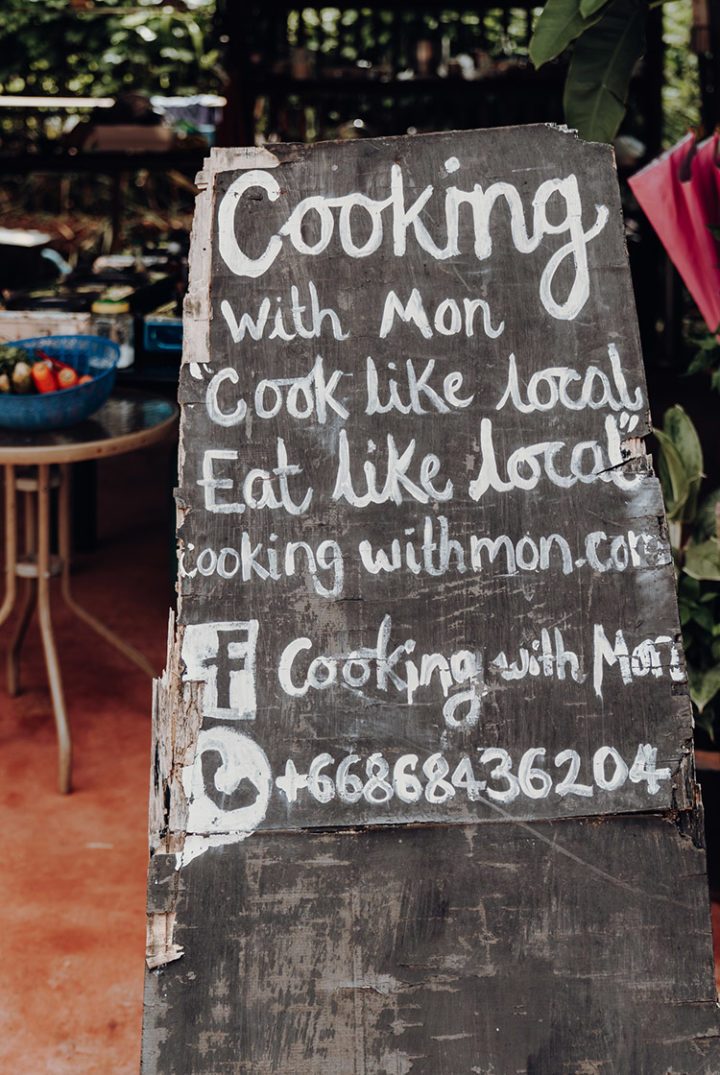 Cooking
With Mon
"Cook like local
Eat like local"
cooking withmon.com
f Cooking with Mon
+66868436204